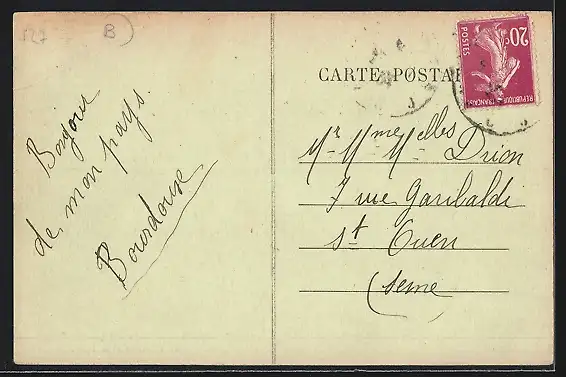 127 B
Bonjour
de mon pays.
Bourdoux
CARTE POSTA
20c
POSTES
REPUBLIQUE FRANÇAISE
Mr Mme Melles Drion
7 rue Garibaldi
St Ouen
(Seine